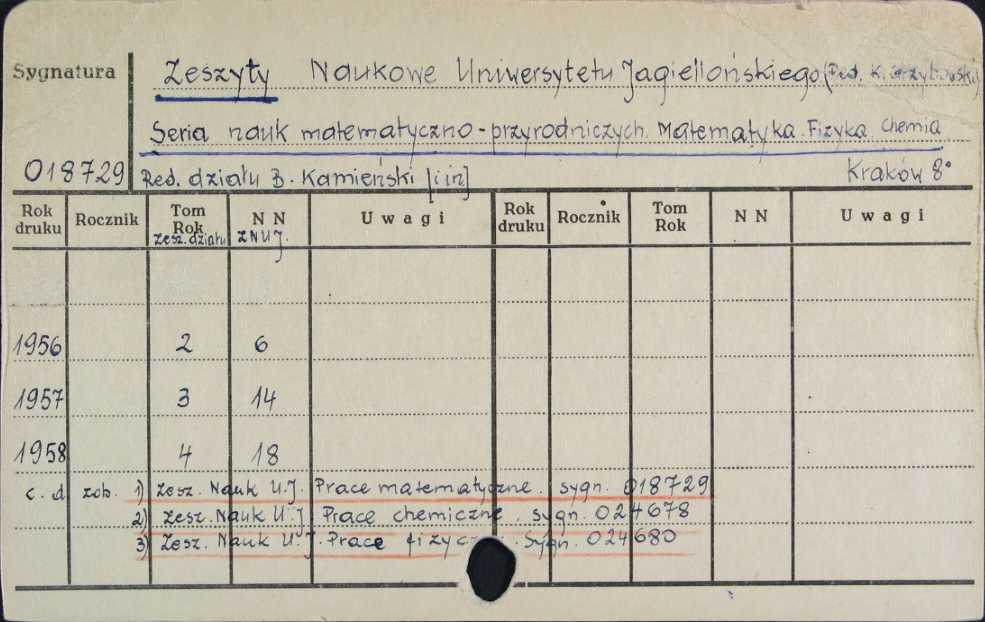 Sygnatura Zeszyty Naukowe Uniwersytetu Jagiellońskiego (Red. K. Grzybowski)
Seria nauk matematyczno-przyrodniczych. Matematyka. Fizyka. Chemia
018729 Red. działu B. Kamieński [i in] Kraków 8°
Rok druku Rocznik Tom Rok Zesz. działu N N ZNUJ. Uwagi Rok druku Rocznik Tom Rok N N Uwagi
1956 2 6
1957 3 14
1958 4 18
c. d zob. 1) Zesz. Nauk U.J. Prace matematyczne. sygn. 018729
2) Zesz. Nauk U.J. Prace chemiczne. sygn. 024678
3) Zesz. Nauk U.J. Prace sygn. 024680